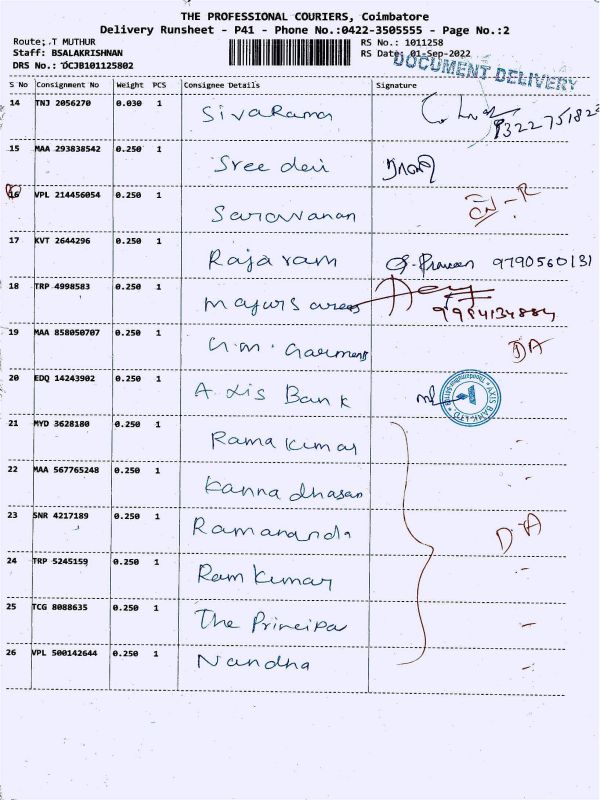 THE PROFESSIONAL COURIERS, Coimbatore
Delivery Runsheet - P41 - Phone No.:0422-3505555 - Page No.:2
Route; .T MUTHUR
RS No.: 1011258
Staff: BSALAKRISHNAN
RS Date: 01-Sep-2022
DRS No.: DCJB101125802
DOCUMENT DELIVERY
S No Consignment No Weight PCS Consignee Details Signature
14 TNJ 2056270 0.030 1 Sivarama
15 MAA 293838542 0.250 1 Sree devi
16 VPL 214456054 0.250 1 Saravanan
17 KVT 2644296 0.250 1 Rajaram 9790560131
18 TRP 4998583 0.250 1
19 MAA 858050707 0.250 1 G.M. Garments DA
20 EDQ 14243902 0.250 1 Axis Bank
AXIS BANK LTD
21 MYD 3628180 0.250 1 Rama kumar
22 MAA 567765248 0.250 1 Kanna dhasan
23 SNR 4217189 0.250 1 Ramananda D-A
24 TRP 5245159 0.250 1 Ram kumar
25 TCG 8088635 0.250 1 The Principa
26 VPL 500142644 0.250 1 Nandha